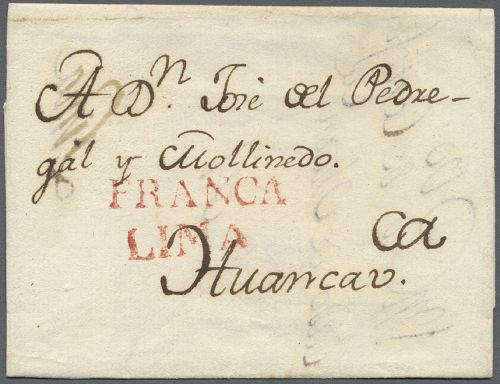 A Dⁿ. José del Pedre-
gal y Mollinedo.
FRANCA
LIMA
ca
Huancav.